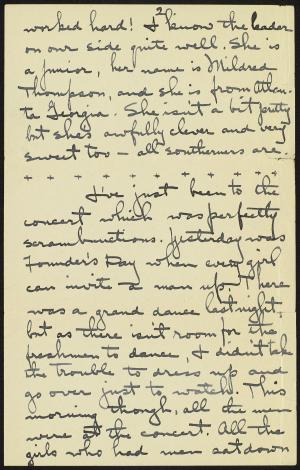 2
worked hard! I know the leader
on our side quite well. She is
a junior, her name is Mildred
Thompson, and she is from Atlan-
ta Georgia. She isn't a bit pretty
but she's awfully clever and very
sweet too – all southerners are.
+ + + + + + + + + +
I've just been to the
concert which was perfectly
scrambunctious. Yesterday was
Founder's Day when every girl
can invite a man up. There
was a grand dance last night.
but as there isn't room for the
freshmen to dance, I didn't take
the trouble to dress up and
go over just to watch. This
morning though, all the men
were at the concert. All the
girls who had men sat down